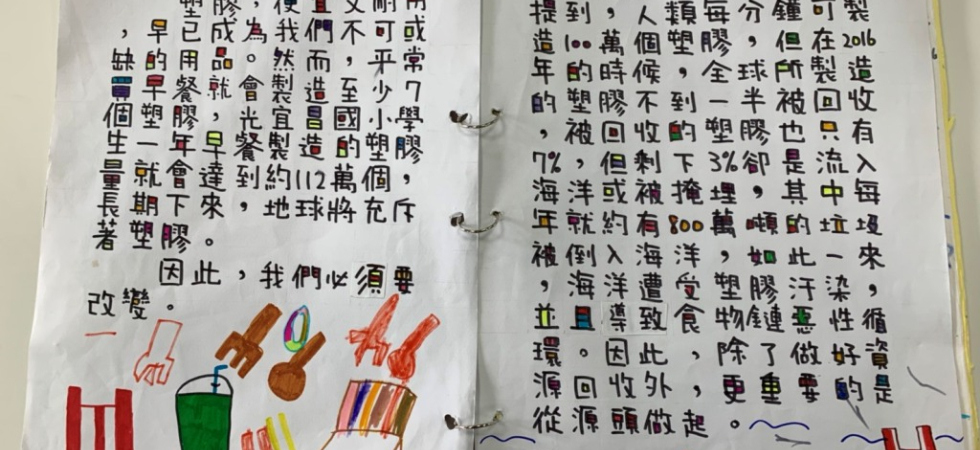 塑膠，便宜又耐用
，早已成為我們不可或
缺的用品。然而，平常
買早餐就會製造至少7
個塑膠，光宜昌國小學
生一年早餐製造的塑膠
量就會達到約112萬個，
長期下來，地球將充斥
著塑膠。
因此，我們必須要
改變。
提到，人類每分鐘可製
造100萬個塑膠，但在2016
年的時候，全球所製造
的塑膠不到一半被回收
，被回收的塑膠也只有
7%，但剩下3%卻是流入
海洋或被掩埋，其中每
年就約有800萬噸的垃圾
被倒入海洋，如此一來
，海洋遭受塑膠汙染，
並且導致食物鏈惡性循
環。因此，除了做好資
源回收外，更重要的是
從源頭做起。